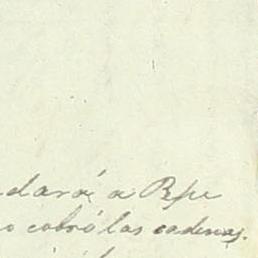 dará a Pepe
o cobró las cadenas.